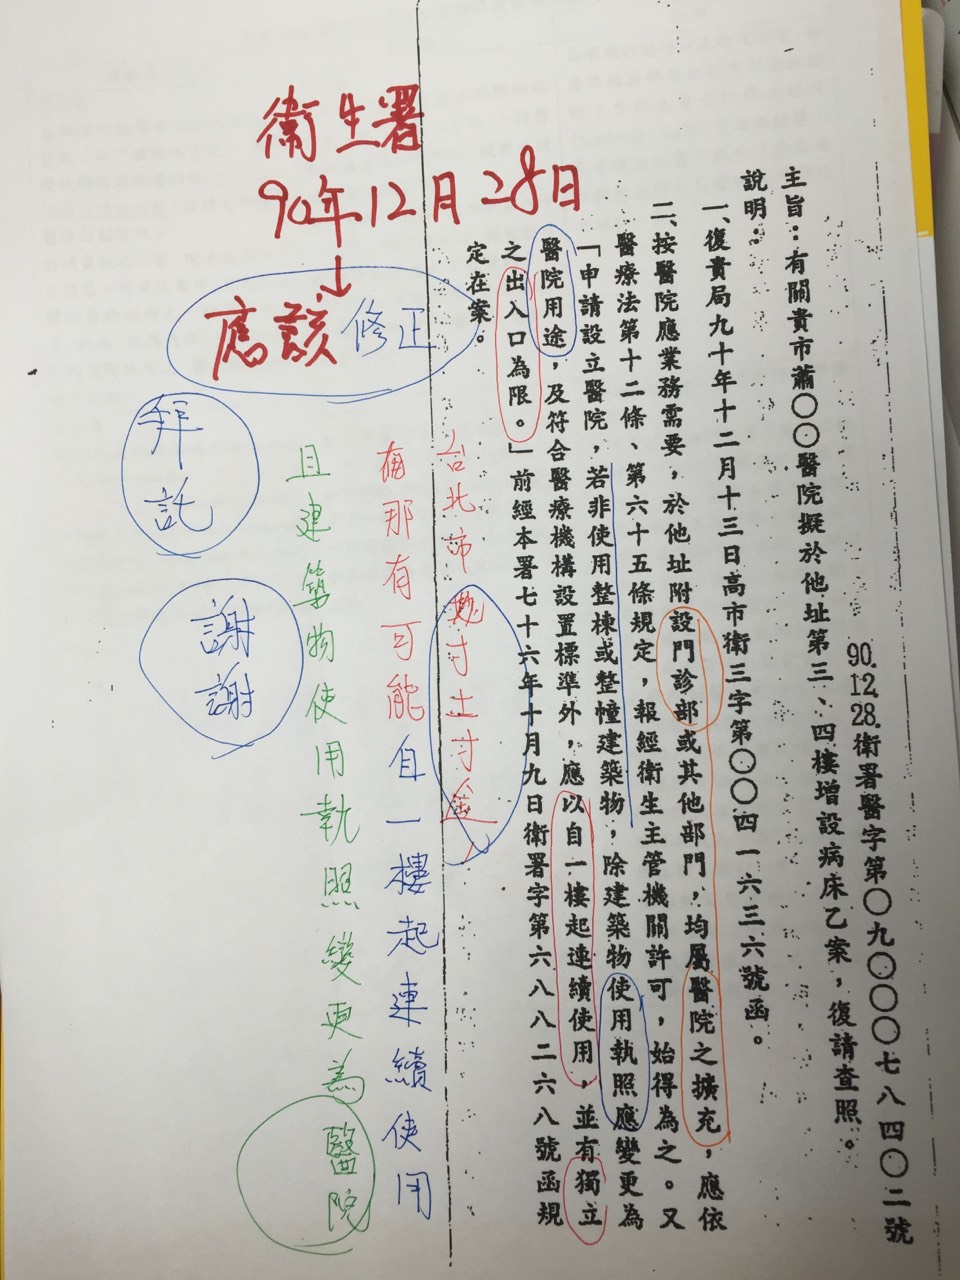 90.12.28.衛署醫字第〇九〇〇〇七八四〇二號
主旨：有關貴市蕭〇〇醫院擬於他址第三、四樓增設病床乙案，復請查照。
說明：
一、復貴局九十年十二月十三日高市衛三字第〇〇〇四一六三六號函。
二、按醫院應業務需要，於他址附設門診部或其他部門，均屬醫院之擴充，應依
醫療法第十二條、第六十五條規定，報經衛生主管機關許可，始得為之。又
「申請設立醫院，若非使用整棟或整幢建築物，除建築物使用執照應變更為
醫院用途，及符合醫療機構設置標準外，應以自一樓起連續使用，並有獨立
之出入口為限。」前經本署七十六年十月九日衛署字第六八八二六八號函規
定在案。
衛生署
90年12月28日
應該修正
台北市寸土寸金
有那有可能自一樓起連續使用
且建築物使用執照變更為醫院
拜託
謝謝